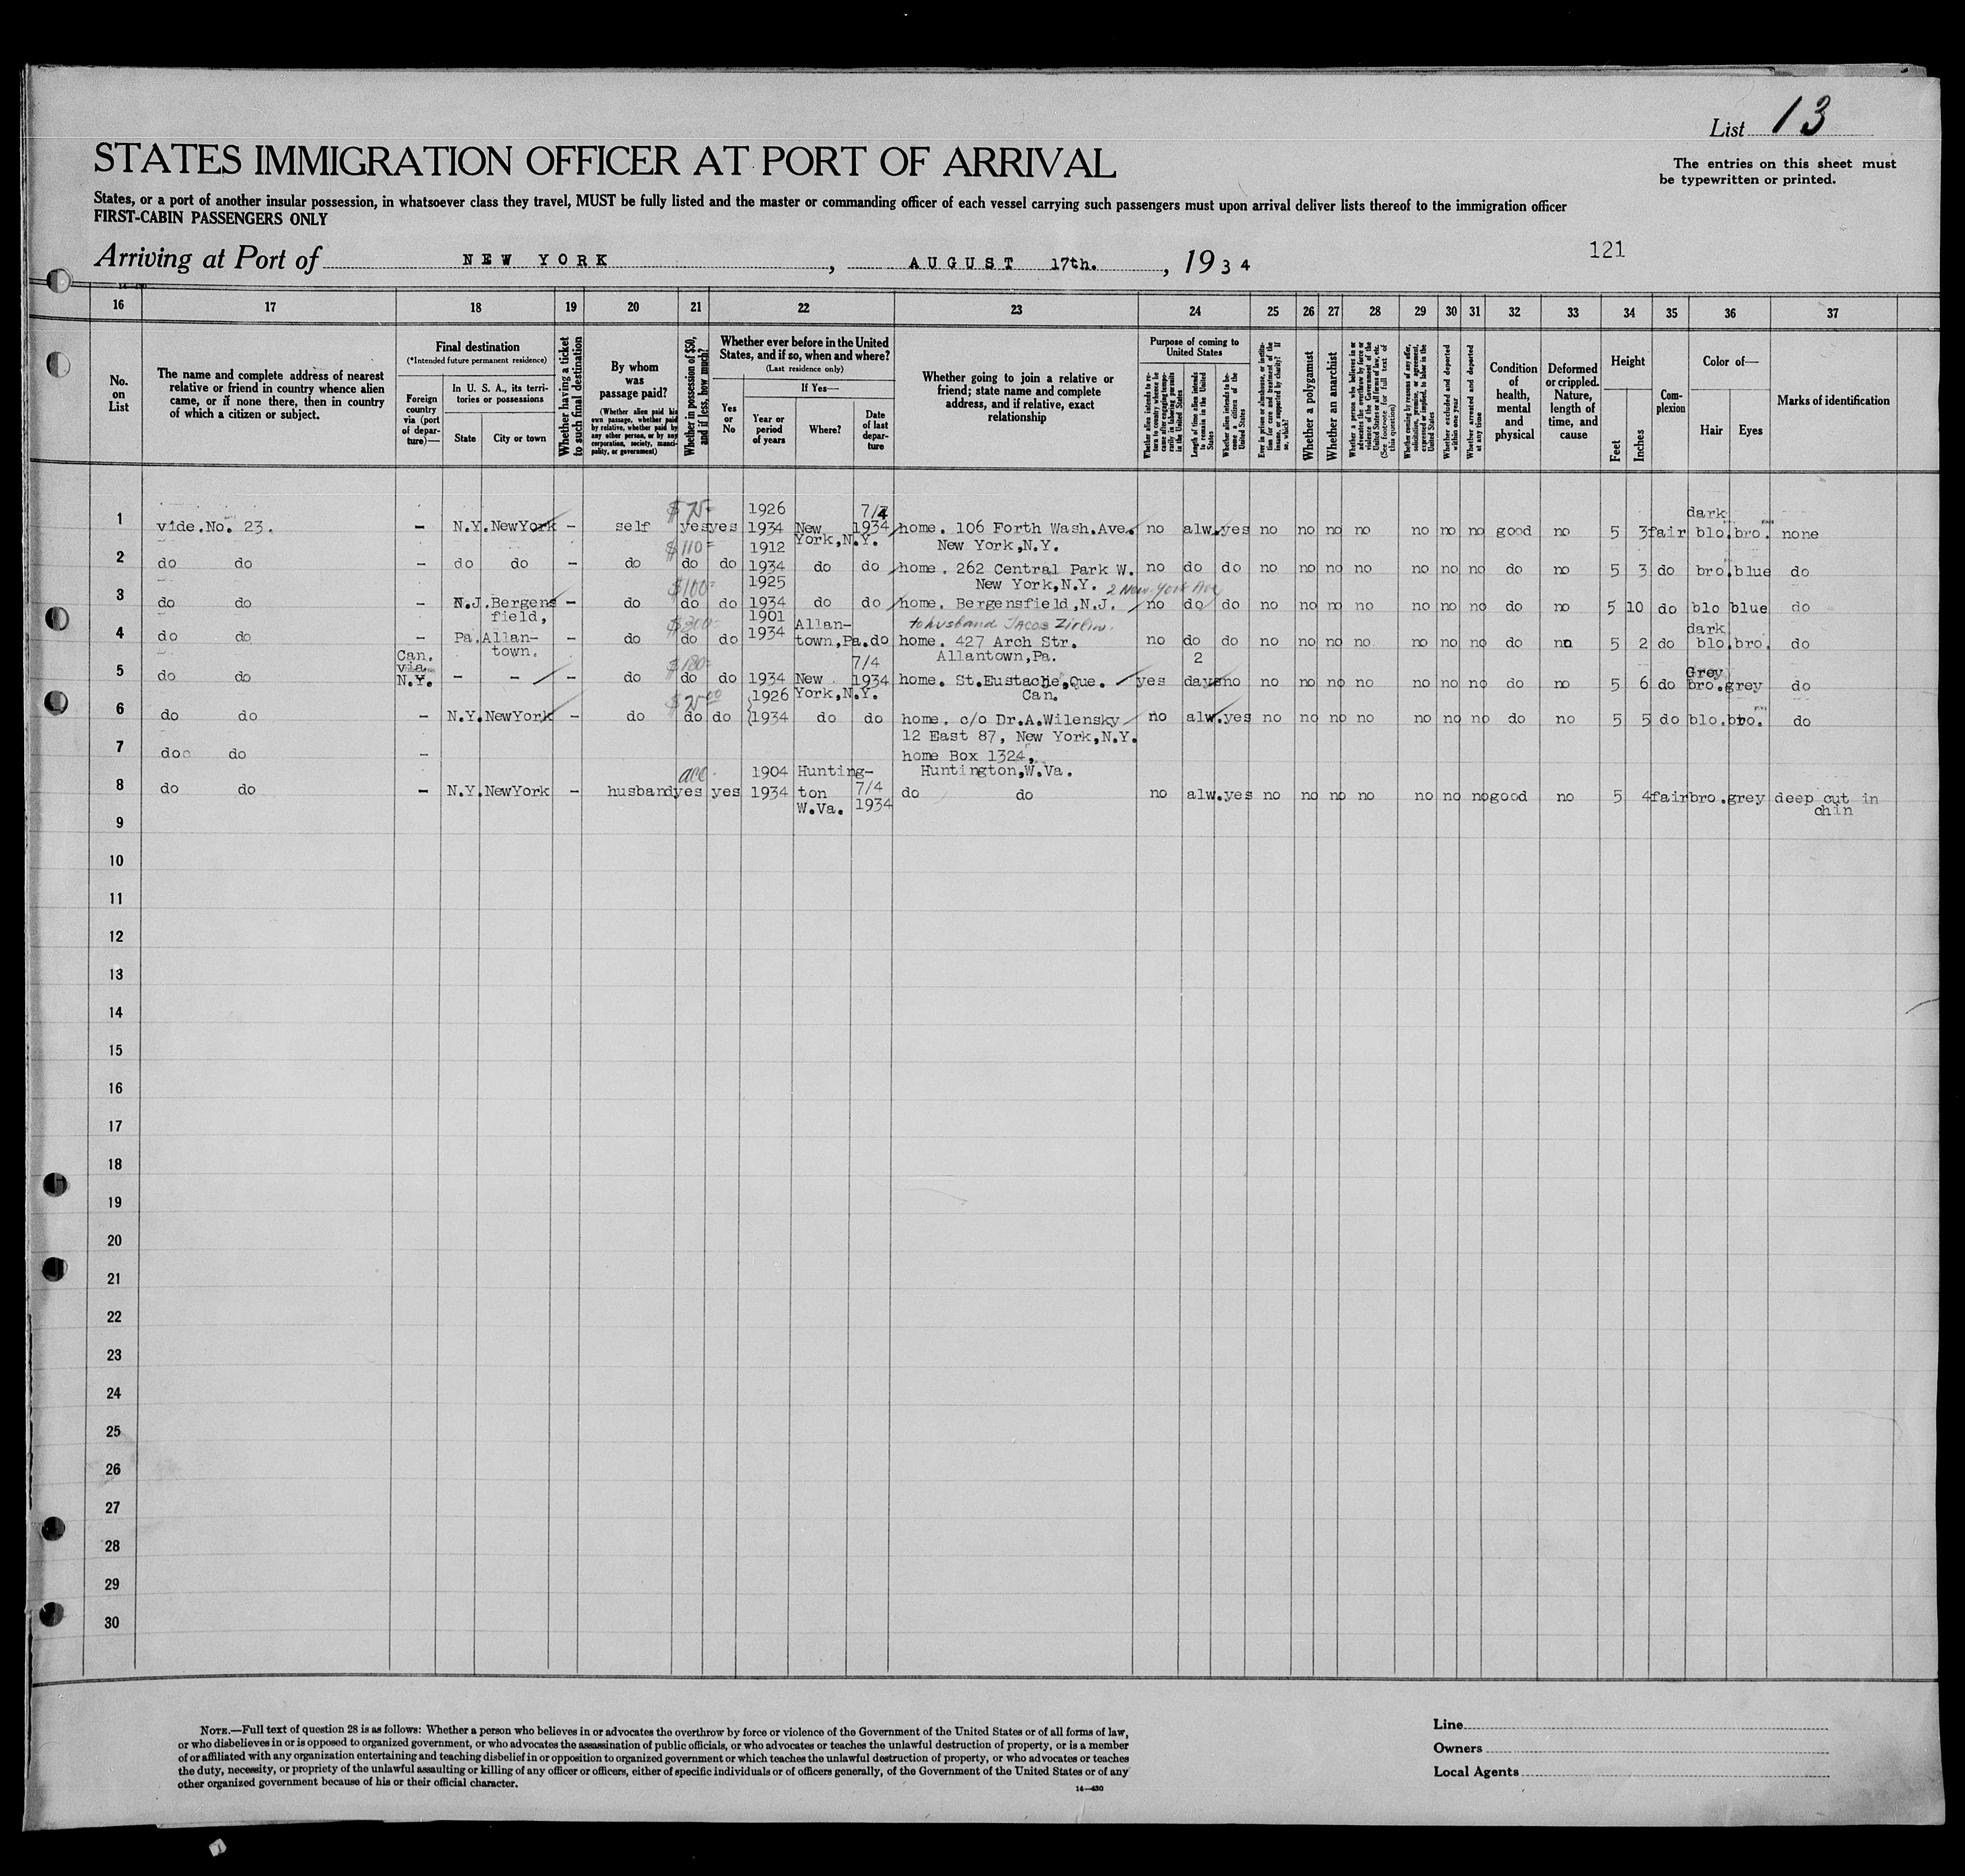 List 13
STATES IMMIGRATION OFFICER AT PORT OF ARRIVAL
The entries on this sheet must
be typewritten or printed.
States, or a port of another insular possession, in whatsoever class they travel, MUST be fully listed and the master or commanding officer of each vessel carrying such passengers must upon arrival deliver lists thereof to the immigration officer
FIRST-CABIN PASSENGERS ONLY
Arriving at Port of NEW YORK, AUGUST 17th., 1934
121
16 17 18 19 20 21 22 23 24 25 26 27 28 29 30 31 32 33 34 35 36 37
No. on List
The name and complete address of nearest
relative or friend in country whence alien
came, or if none there, then in country
of which a citizen or subject.
Final destination
(*Intended future permanent residence)
Foreign country via (port of departure)—
In U. S. A., its territories or possessions
State
City or town
Whether having a ticket to such final destination
By whom was passage paid?
(Whether alien paid his own passage, whether paid by relative, whether paid by any other person, or by any corporation, society, municipality, or government)
Whether in possession of $50, and if less, how much?
Whether ever before in the United
States, and if so, when and where?
(Last residence only)
Yes or No
If Yes—
Year or period of years
Where?
Date of last departure
Whether going to join a relative or
friend; state name and complete
address, and if relative, exact
relationship
Purpose of coming to
United States
Whether alien intends to return to country whence he came after engaging temporarily in laboring pursuits in the United States
Length of time alien intends to remain in the United States
Whether alien intends to become a citizen of the United States
Ever in prison or almshouse, or institution for care and treatment of the insane, or supported by charity? If so, which?
Whether a polygamist
Whether an anarchist
Whether a person who believes in or advocates the overthrow by force or violence of the Government of the United States or all forms of law, etc. (See footnote for full text of this question)
Whether coming by reasons of any offer, solicitation, promise, or agreement, expressed or implied, to labor in the United States
Whether excluded and deported within one year
Whether arrested and deported at any time
Condition of health, mental and physical
Deformed or crippled. Nature, length of time, and cause
Height
Feet
Inches
Complexion
Color of—
Hair
Eyes
Marks of identification
$75= 1926 7/4 dark
1 vide.No. 23. – N.Y. NewYork – self yes yes 1934 New 1934 home. 106 Forth Wash.Ave. no alw. yes no no no no no no no good no 5 3 fair blo. bro. none
York,N.Y.
$110= 1912 New York,N.Y.
2 do do – do do – do do do 1934 do do home. 262 Central Park W. no do do no no no no no no no do no 5 3 do bro. blue do
$100= 1925 New York,N.Y. 2 New York Ave
3 do do – N.J. Bergens – do do do 1934 do do home. Bergensfield,N.J. no do do no no no no no no no do no 5 10 do blo blue do
field, $200= 1901 Allan- to husband Jacob Zirlin. dark
4 do do – Pa. Allan- – do do do 1934 town,Pa. do home. 427 Arch Str. no do do no no no no no no no do no 5 2 do blo. bro. do
town.
Allantown,Pa.
Can. via. N.Y. $180= 7/4 2 Grey
5 do do – – do do do 1934 New 1934 home. St.Eustache,Que. yes days no no no no no no no no do no 5 6 do bro. grey do
1926 York,N.Y. Can.
6 do do – N.Y. NewYork – do do do 1934 do do home. c/o Dr.A.Wilensky no alw. yes no no no no no no no do no 5 5 do blo. bro. do
12 East 87, New York,N.Y.
7 do do – home Box 1324,
acc. 1904 Hunting- Huntington,W.Va.
8 do do – N.Y. NewYork – husband yes yes 1934 ton 7/4 do do no alw. yes no no no no no no no good no 5 4 fair bro. grey deep cut in
W.Va. 1934 chin
9
10
11
12
13
14
15
16
17
18
19
20
21
22
23
24
25
26
27
28
29
30
NOTE.—Full text of question 28 is as follows: Whether a person who believes in or advocates the overthrow by force or violence of the Government of the United States or of all forms of law,
or who disbelieves in or is opposed to organized government, or who advocates the assassination of public officials, or who advocates or teaches the unlawful destruction of property, or is a member
of or affiliated with any organization entertaining and teaching disbelief in or opposition to organized government or which teaches the unlawful destruction of property, or who advocates or teaches
the duty, necessity, or propriety of the unlawful assaulting or killing of any officer or officers, either of specific individuals or of officers generally, of the Government of the United States or of any
other organized government because of his or their official character.
14—430
Line
Owners
Local Agents